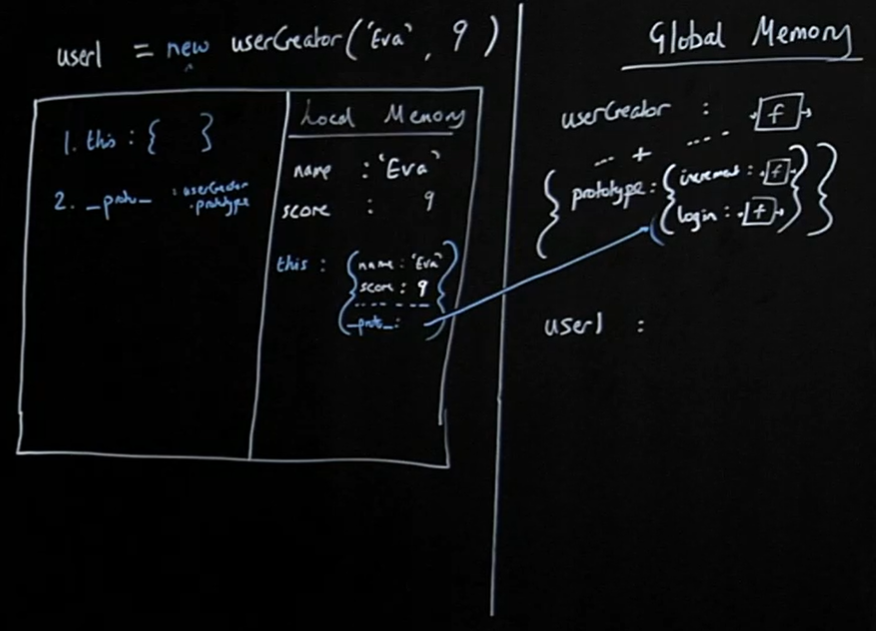 user1 = new userCreator('Eva', 9)
1. this : { }
2. __proto__ : userCreator
.prototype
Local Memory
name : 'Eva'
score : 9
this : { name : 'Eva'
score : 9
--------
__proto__ : }
Global Memory
userCreator : [f]
--- + ----
{ prototype : { increment : [f]
login : [f] } }
user1 :